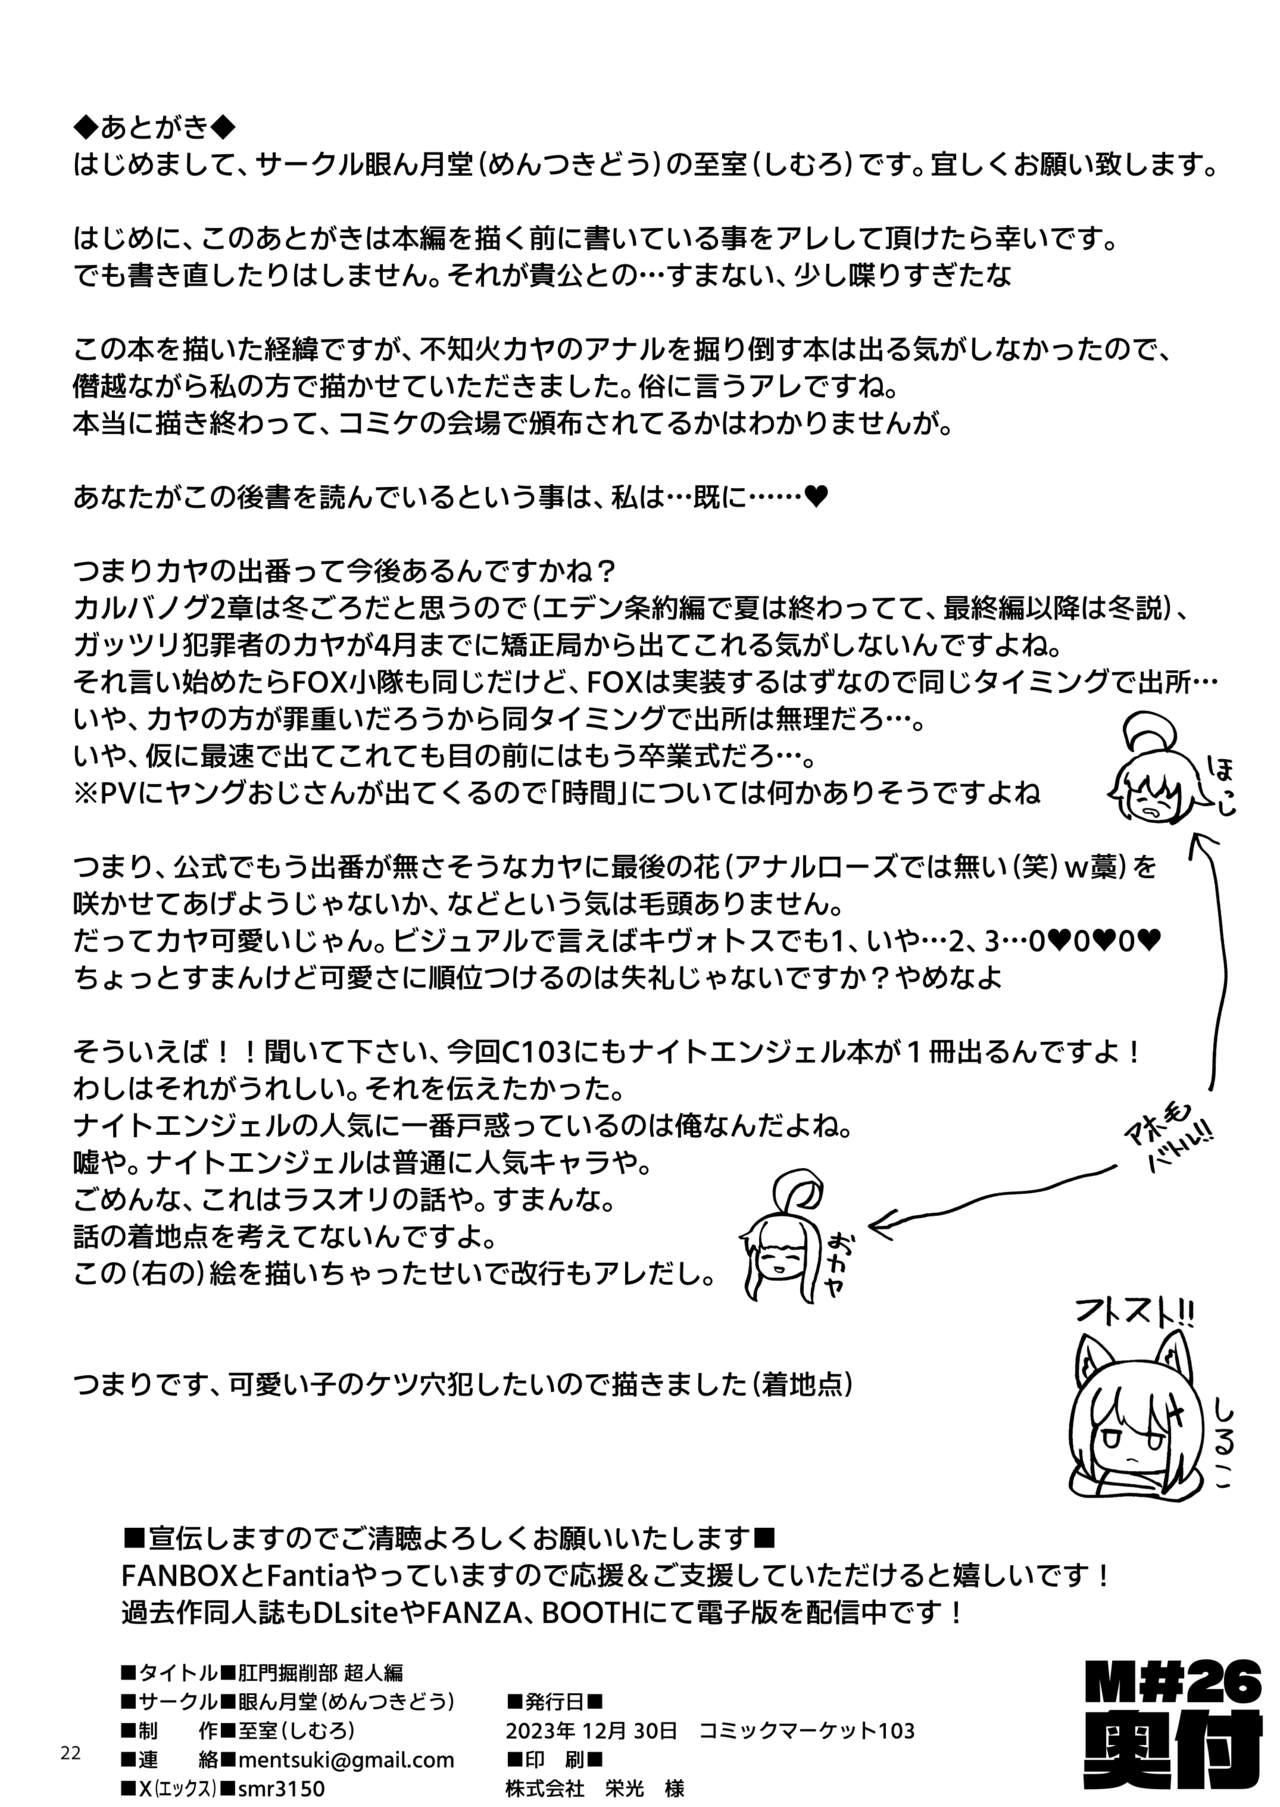 ◆あとがき◆
はじめまして、サークル眼ん月堂（めんつきどう）の至室（しむろ）です。宜しくお願い致します。
はじめに、このあとがきは本編を描く前に書いている事をアレして頂けたら幸いです。
でも書き直したりはしません。それが貴公との…すまない、少し喋りすぎたな
この本を描いた経緯ですが、不知火カヤのアナルを掘り倒す本は出る気がしなかったので、
僭越ながら私の方で描かせていただきました。俗に言うアレですね。
本当に描き終わって、コミケの会場で頒布されてるかはわかりませんが。
あなたがこの後書を読んでいるという事は、私は…既に……♥
つまりカヤの出番って今後あるんですかね？
カルバノグ2章は冬ごろだと思うので（エデン条約編で夏は終わってて、最終編以降は冬説）、
ガッツリ犯罪者のカヤが4月までに矯正局から出てこれる気がしないんですよね。
それ言い始めたらFOX小隊も同じだけど、FOXは実装するはずなので同じタイミングで出所…
いや、カヤの方が罪重いだろうから同タイミングで出所は無理だろ…。
いや、仮に最速で出てこれても目の前にはもう卒業式だろ…。
※PVにヤングおじさんが出てくるので「時間」については何かありそうですよね
ほっし
つまり、公式でもう出番が無さそうなカヤに最後の花（アナルローズでは無い（笑）ｗ藁）を
咲かせてあげようじゃないか、などという気は毛頭ありません。
だってカヤ可愛いじゃん。ビジュアルで言えばキヴォトスでも1、いや…2、3…0♥0♥0♥
ちょっとすまんけど可愛さに順位つけるのは失礼じゃないですか？やめなよ
そういえば！！聞いて下さい、今回C103にもナイトエンジェル本が１冊出るんですよ！
わしはそれがうれしい。それを伝えたかった。
ナイトエンジェルの人気に一番戸惑っているのは俺なんだよね。
嘘や。ナイトエンジェルは普通に人気キャラや。
ごめんな、これはラスオリの話や。すまんな。
話の着地点を考えてないんですよ。
この（右の）絵を描いちゃったせいで改行もアレだし。
アホ毛
バトル!!
おカヤ
つまりです、可愛い子のケツ穴犯したいので描きました（着地点）
フトスト!!
しるこ
■宣伝しますのでご清聴よろしくお願いいたします■
FANBOXとFantiaやっていますので応援＆ご支援していただけると嬉しいです！
過去作同人誌もDLsiteやFANZA、BOOTHにて電子版を配信中です！
■タイトル■肛門掘削部 超人編
■サークル■眼ん月堂（めんつきどう）
■制　作■至室（しむろ）
■連　絡■mentsuki@gmail.com
■X（エックス）■smr3150
■発行日■
2023年 12月 30日　コミックマーケット103
■印　刷■
株式会社　栄光　様
M#26
奥付
22